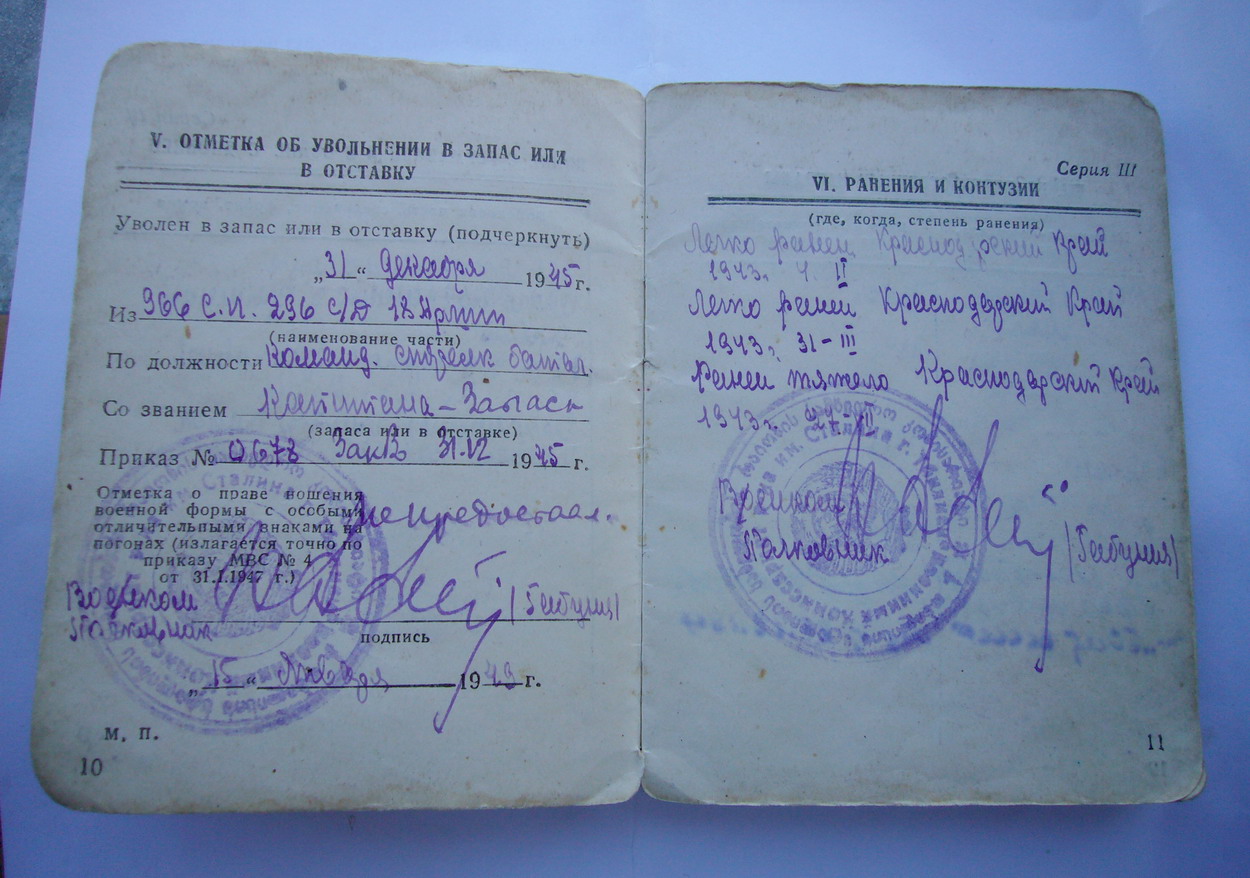 V. ОТМЕТКА ОБ УВОЛЬНЕНИИ В ЗАПАС ИЛИ
В ОТСТАВКУ
Уволен в запас или в отставку (подчеркнуть)
„31“ декабря 1945 г.
Из 966 с.п. 296 с/д 18 Армии
(наименование части)
По должности Команд. стрелк батал.
Со званием Капитана-Запаса
(запаса или в отставке)
Приказ № 0678 ЗакВО 31.12 1945 г.
Отметка о праве ношения
военной формы с особыми
отличительными знаками на
погонах (излагается точно по
приказу МВС № 4
от 31.I.1947 г.)
не предостав.
Военком
Полковник
подпись
„15“ Января 1949 г.
М. П.
10
Серия III
VI. РАНЕНИЯ И КОНТУЗИИ
(где, когда, степень ранения)
Легко ранен Краснодарский Край
1943г. 4 II
Легко ранен Краснодарский Край
1943г. 31-III
Ранен тяжело Краснодарский Край
1943г.
Военком
Полковник
11